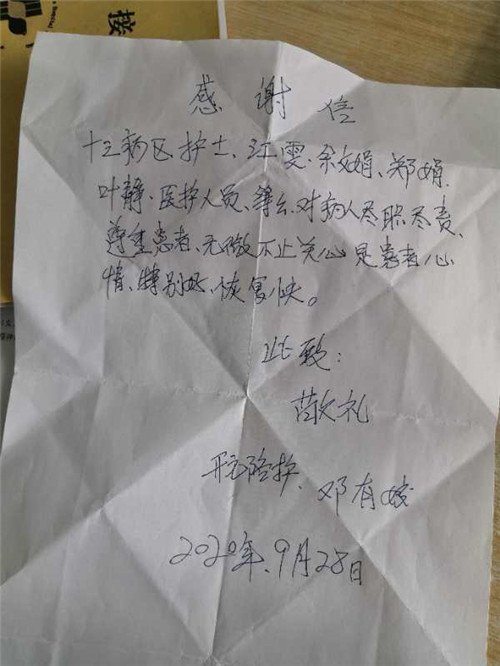 接
感谢信
十三病区护士、江雯、余文娟、郑娟、
叶静、医护人员、等公、对病人尽职尽责、
尊重患者、无微不止关心是患者心
情、特别好、恢复快。
此致:
敬礼
陪护、邓有
2020年、9月28日